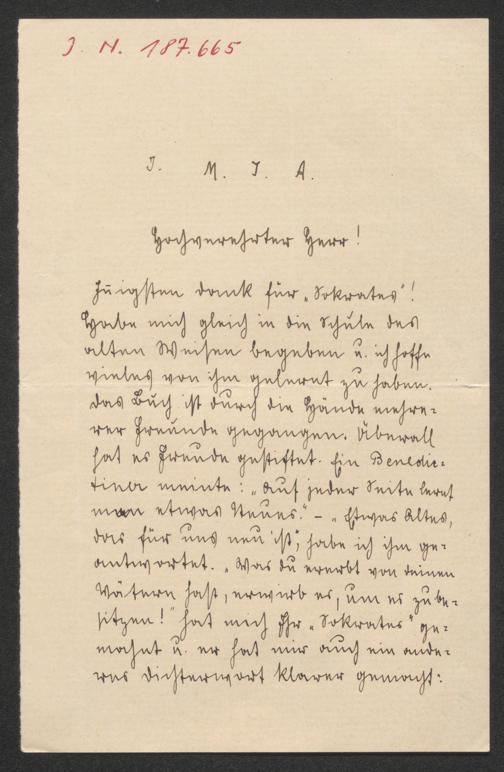 J. N. 187.665
J. M. J. A.
Hochverehrter Herr!
Innigsten Dank für „Sokrates"!
Habe mich gleich in die Schule des
alten Weisen begeben u. ich hoffe
vieles von ihm gelernt zu haben.
Das Buch ist durch die Hände mehre-
rer Freunde gegangen. Überall
hat es Freude gestiftet. Ein Benedic-
tiner meinte: „Auf jeder Seite lernt
man etwas Neues." – „Etwas Altes,
das für uns neu ist", habe ich ihm ge-
antwortet. „Was du ererbt von deinen
Vätern hast, erwirb es, um es zu be-
sitzen!" hat mich Ihr „Sokrates" ge-
mahnt u. er hat mir auch ein ande-
res Dichterwort klarer gemacht: